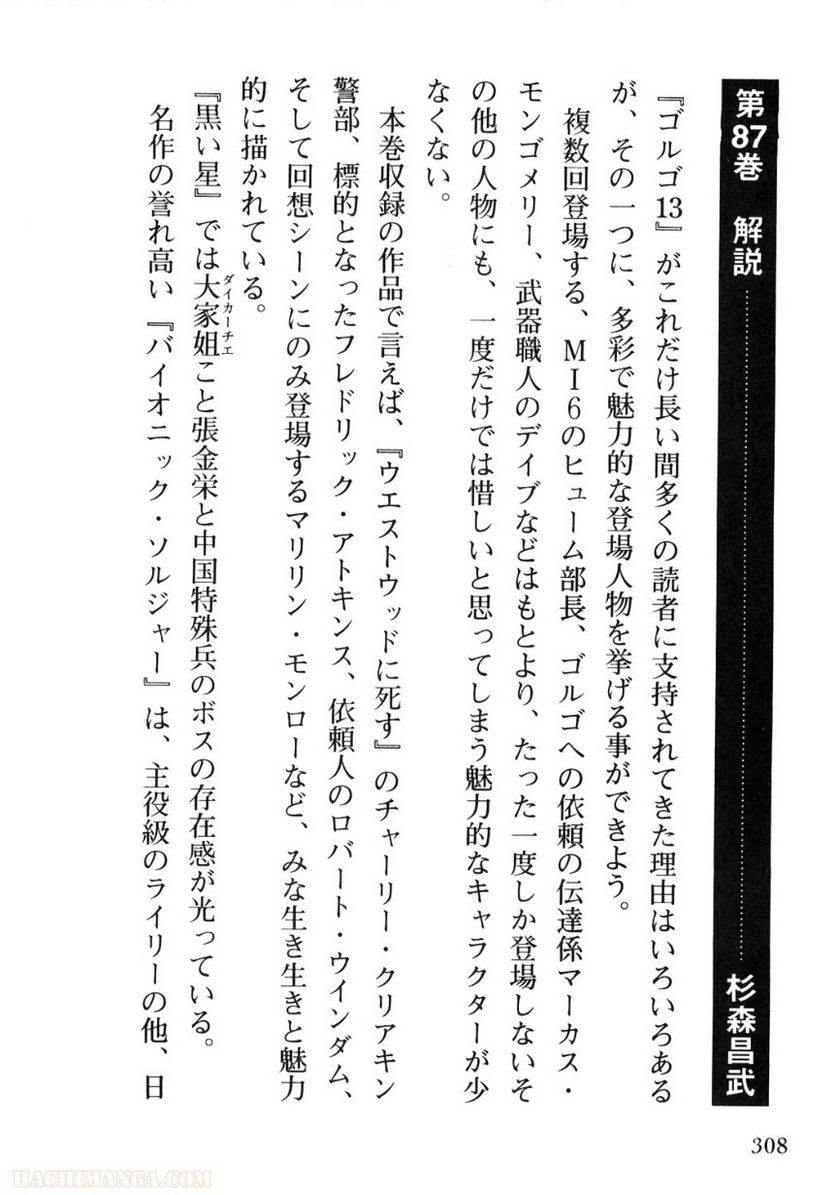 第87巻 解説……………………………………杉森昌武
『ゴルゴ13』がこれだけ長い間多くの読者に支持されてきた理由はいろいろある
が、その一つに、多彩で魅力的な登場人物を挙げる事ができよう。
複数回登場する、MI6のヒューム部長、ゴルゴへの依頼の伝達係マーカス・
モンゴメリー、武器職人のデイブなどはもとより、たった一度しか登場しないそ
の他の人物にも、一度だけでは惜しいと思ってしまう魅力的なキャラクターが少
なくない。
本巻収録の作品で言えば、『ウエストウッドに死す』のチャーリー・クリアキン
警部、標的となったフレドリック・アトキンス、依頼人のロバート・ウインダム、
そして回想シーンにのみ登場するマリリン・モンローなど、みな生き生きと魅力
的に描かれている。
『黒い星』では大家姐ダイカーチエこと張金栄と中国特殊兵のボスの存在感が光っている。
名作の誉れ高い『バイオニック・ソルジャー』は、主役級のライリーの他、日
308
HACHIMANGA.COM